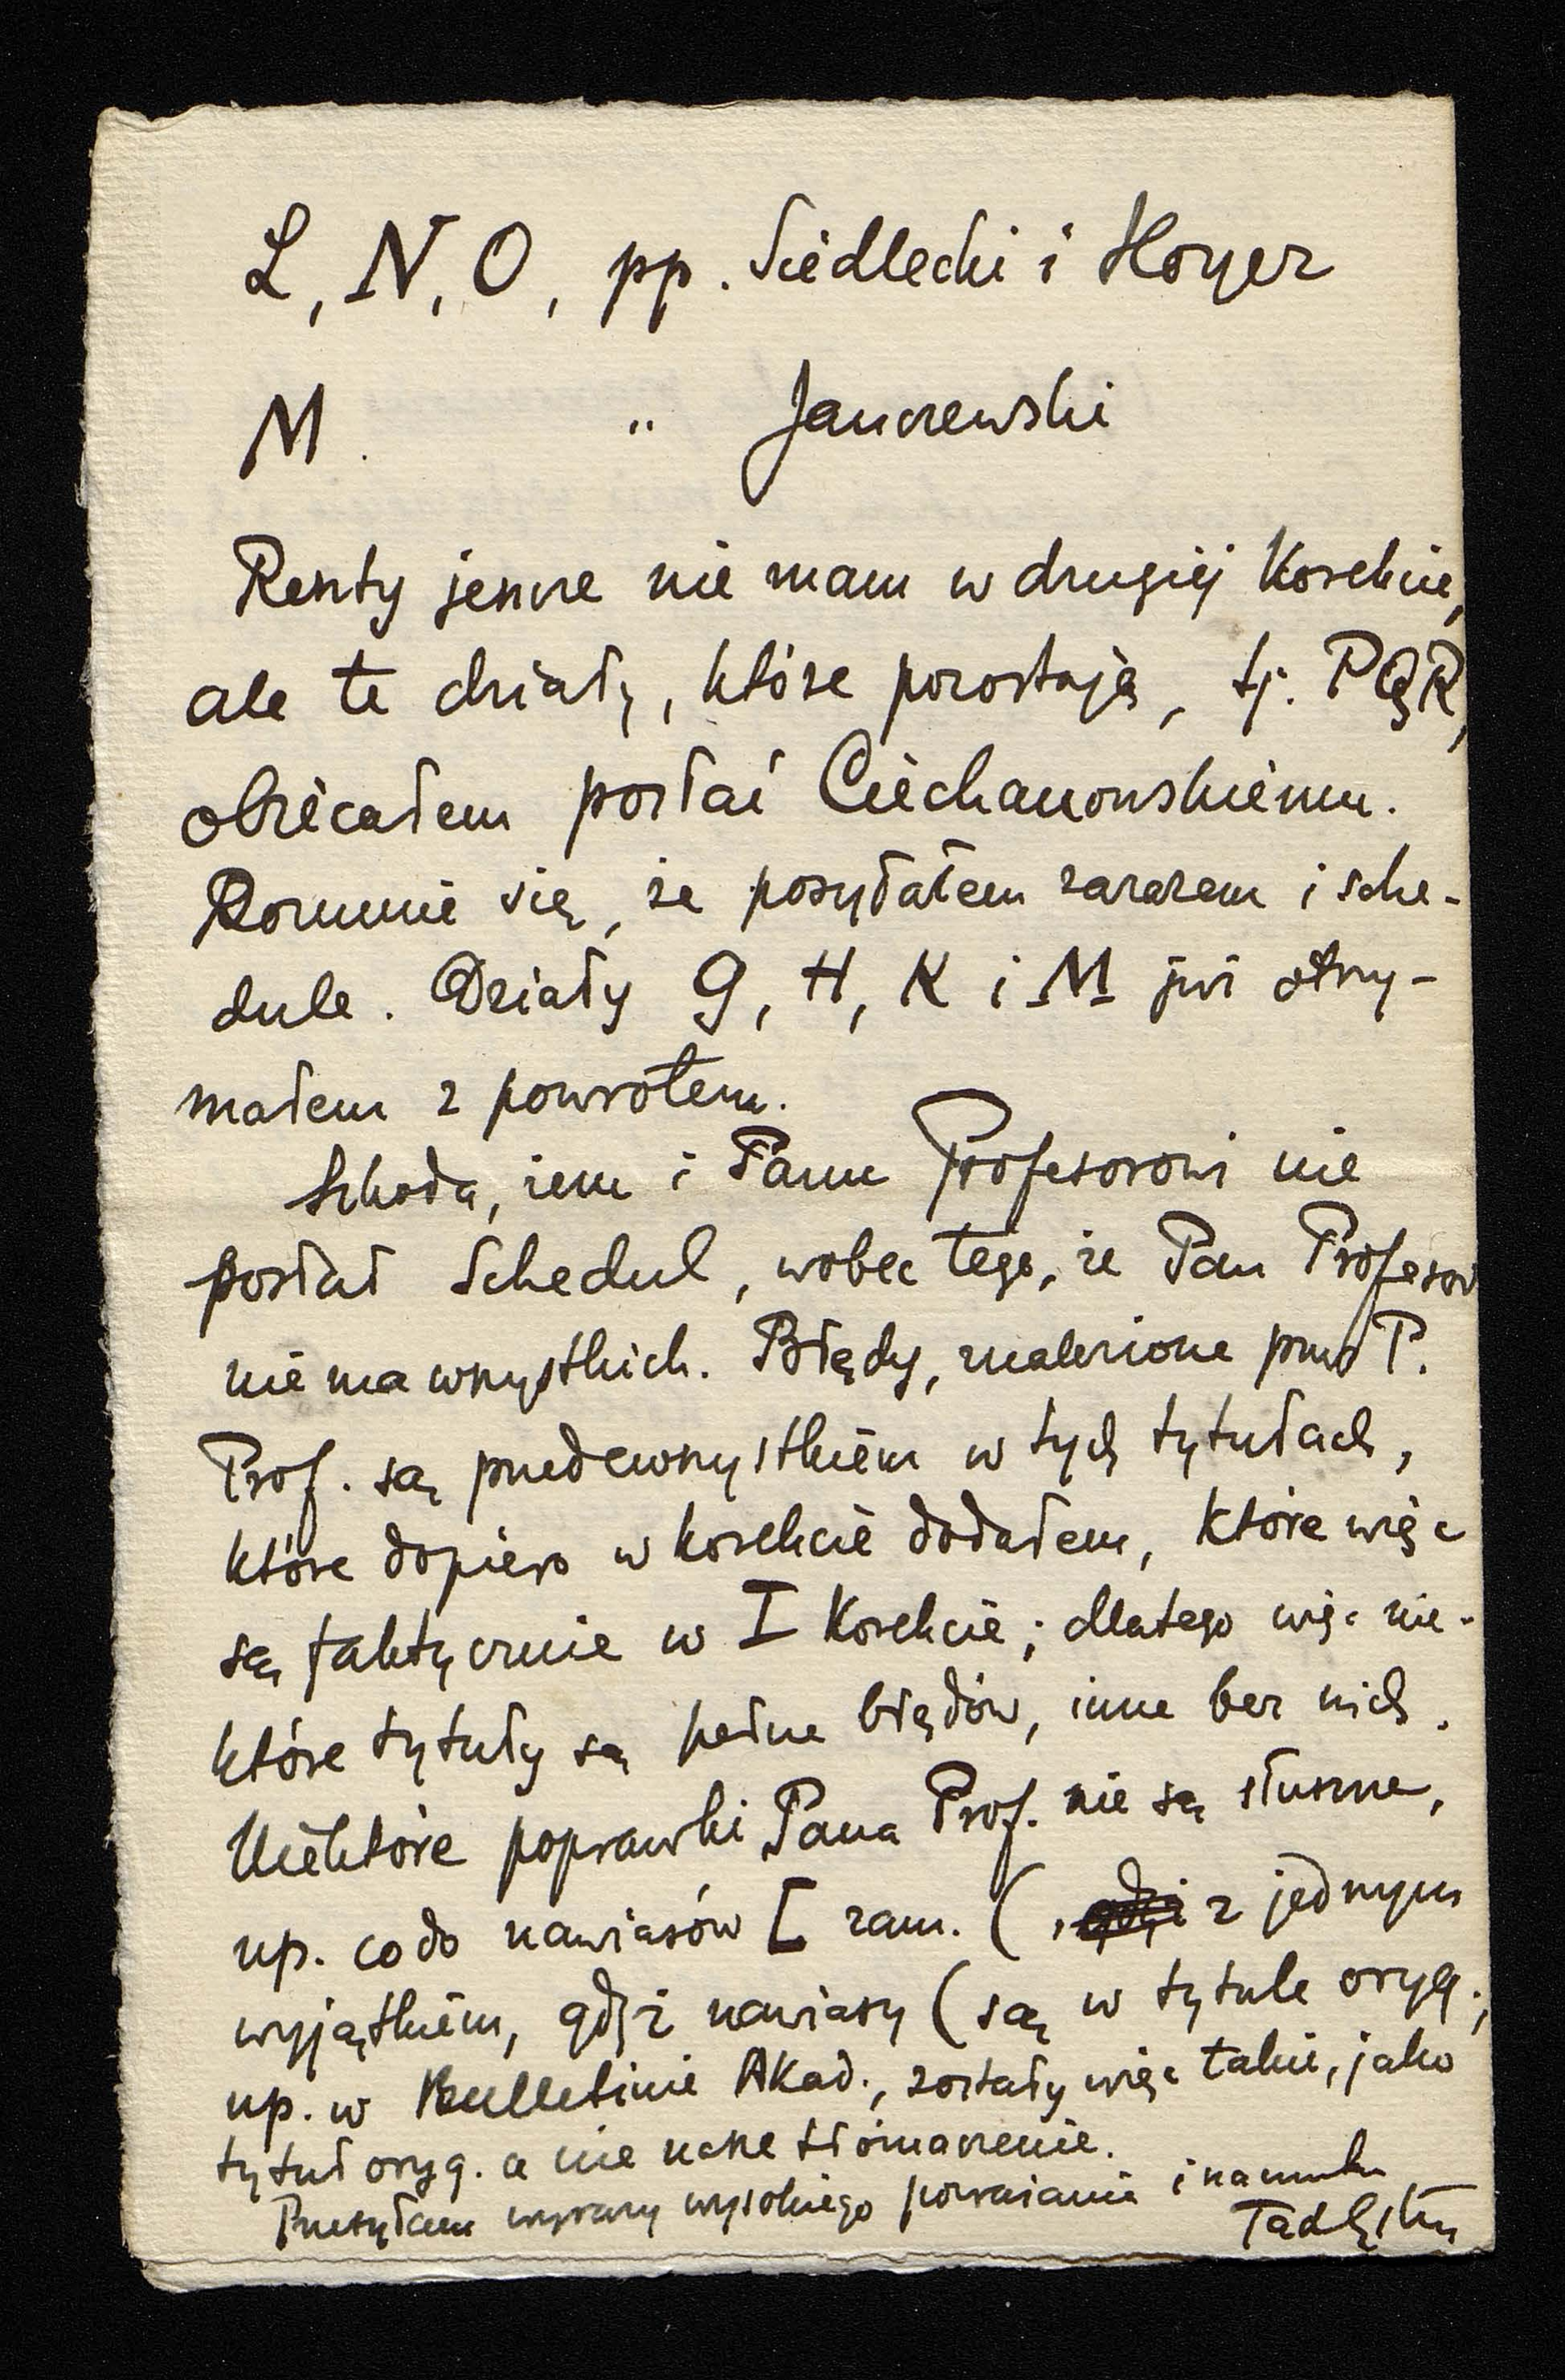 L, N, O, pp. Siedlecki i Hoyer
M. " Janczewski
Reszty jeszcze nie mam w drugiéj Korekcie,
ale te działy, które pozostają, tj. PQR,
obiecałem posłać Ciechanowskiemu.
Rozumie się, że posyłałem zarazem i sche-
dule. Działy G, H, K i M już otrzy-
małem z powrotem.
Szkoda, żem i Panu Profesorowi nie
posłał Schedul, wobec tego, że Pan Profesor
nie ma wszystkich. Błędy, znalezione przez P.
Prof. są przedewszystkiém w tych tytułach,
które dopiero w korekcie dodałem, które więc
są faktycznie w I Korekcie; dlatego więc nie-
które tytuły są pełne błędów, inne bez nich.
Niektóre poprawki Pana Prof. nie są słuszne,
np. co do nawiasów [ zam. (, z jednym
wyjątkiém, gdyż nawiasy ( są w tytule oryg.,
np. w Bulletinie Akad., zostały więc takie, jako
tytuł oryg. a nie nasze tłómaczenie.
Przesyłam wyrazy wysokiego poważania i szacunku